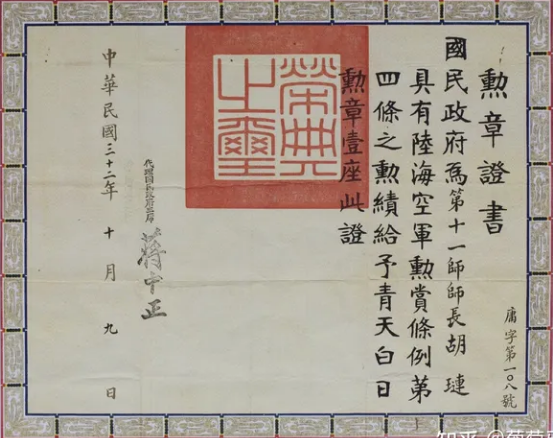 勳章證書
國民政府為第十一師師長胡璉
具有陸海空軍勳賞條例第
四條之勳績給予青天白日
勳章壹座此證
榮典之璽
代理國民政府主席
蔣中正
中華民國三十二年十月九日
庸字第一〇八號
知乎